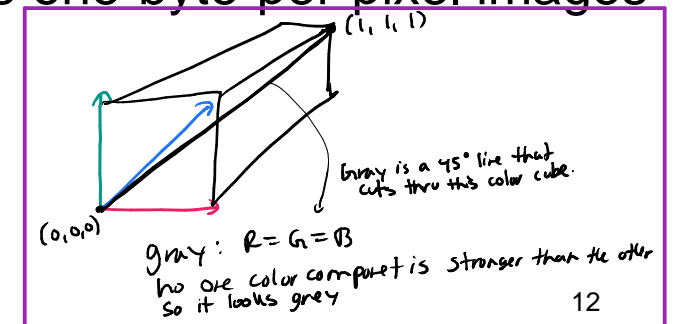 one byte per pixel images
(1, 1, 1)
Gray is a 45° line that
cuts thru this color cube.
(0,0,0)
gray: R=G=B
no one color componet is stronger than the other
so it looks grey
12